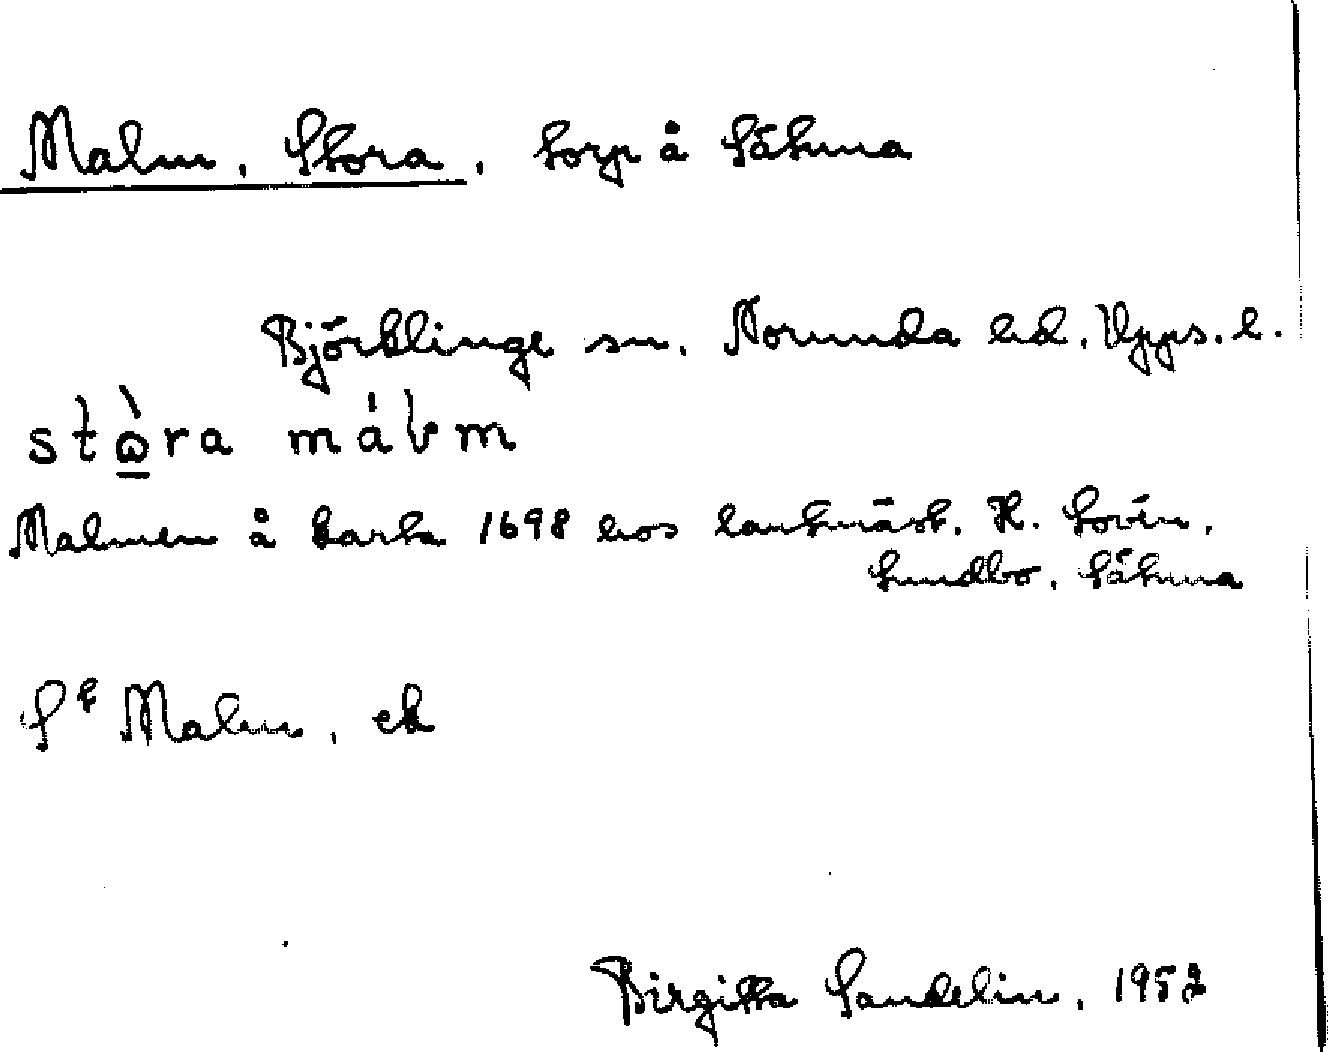 Malm, Stora, torp å Sätuna
Björklinge sn. Norunda hd. Upps. l.
stὼ̠ra mál̵m
Malmen å karta 1698 hos lantmäst. H. Lovén,
Lundbo, Sätuna
St Malm, ek
Birgitta Sandelin, 1952